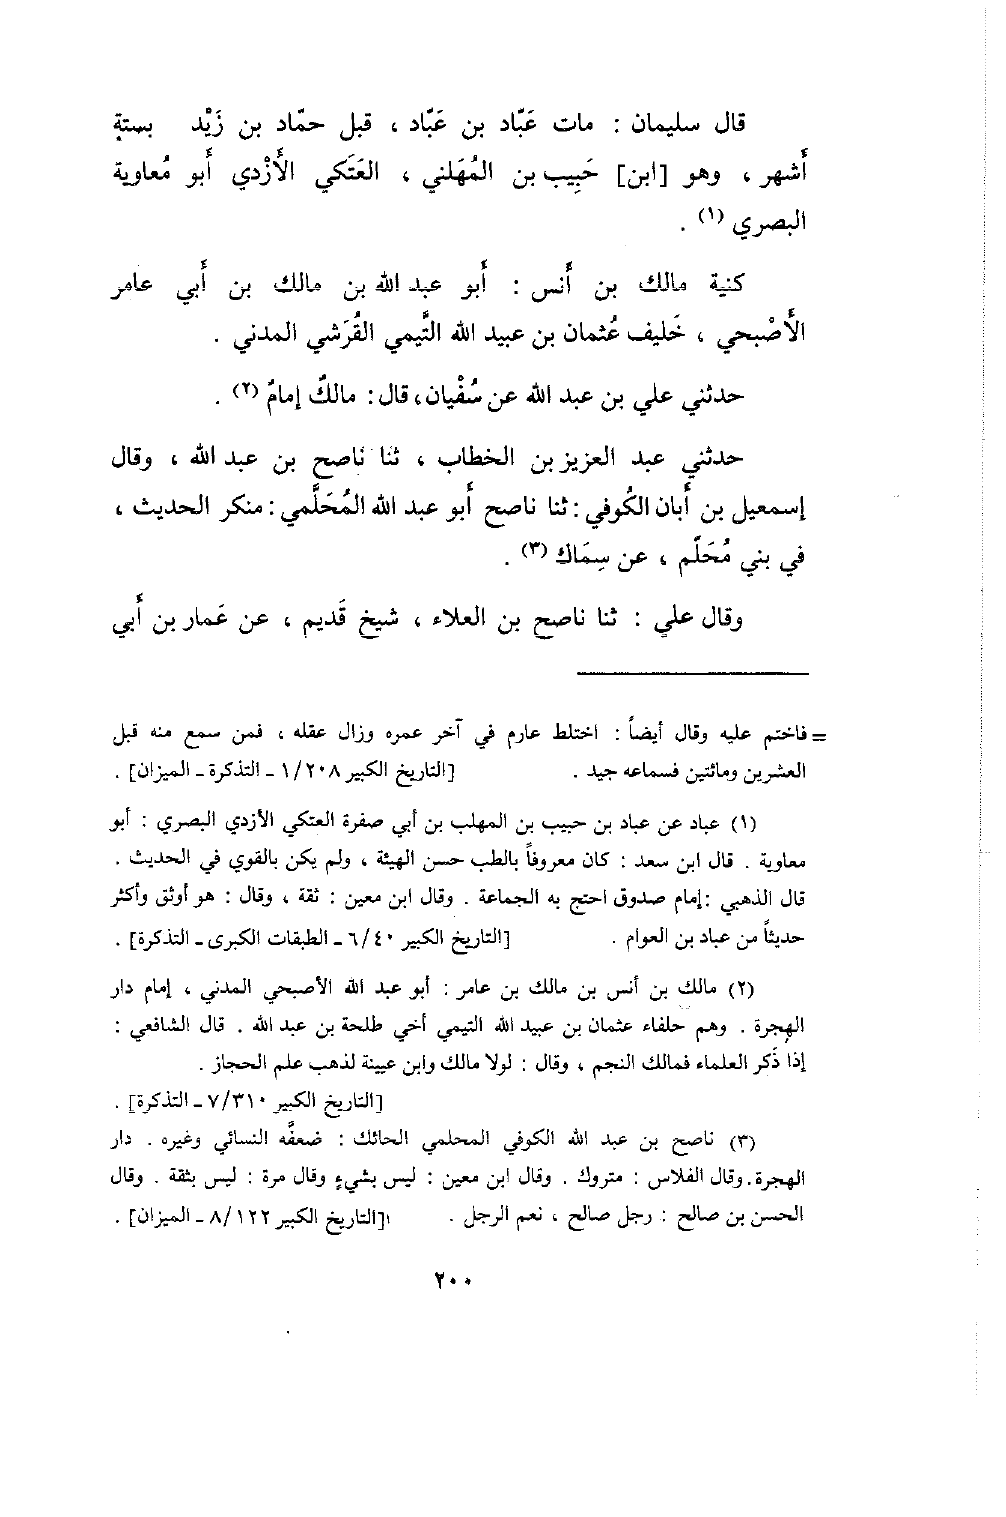 قال سليمان : مات عَبّاد بن عَبّاد ، قبل حمّاد بن زَيْد بستةِ
أَشهر ، وهو [ابن] حَبِيب بن المُهَلني ، العَتَكي الأَزْدي أَبو مُعاوية
البصري (١) .
كنية مالك بن أَنس : أَبو عبد الله بن مالك بن أَبي عامر
الأَصْبحي ، خَليف عُثمان بن عبيد الله التَّيمي القُرَشي المدني .
حدثني علي بن عبد الله عن سُفْيان، قال: مالكٌ إمامٌ (٢) .
حدثني عبد العزيز بن الخطاب ، ثنا ناصح بن عبد الله ، وقال
إسمعيل بن أَبان الكُوفي : ثنا ناصح أَبو عبد الله المُحَلَّمي : منكر الحديث ،
في بني مُحَلّم ، عن سِمَاك (٣) .
وقال علي : ثنا ناصح بن العلاء ، شيخ قَديم ، عن عَمار بن أَبي
= فاختم عليه وقال أيضاً : اختلط عارم في آخر عمره وزال عقله ، فمن سمع منه قبل
العشرين ومائتين فسماعه جيد . [التاريخ الكبير ١/٢٠٨ - التذكرة - الميزان] .
(١) عباد عن عباد بن حبيب بن المهلب بن أبي صفرة العتكي الأزدي البصري : أبو
معاوية . قال ابن سعد : كان معروفاً بالطب حسن الهيئة ، ولم يكن بالقوي في الحديث .
قال الذهبي : إمام صدوق احتج به الجماعة . وقال ابن معين : ثقة ، وقال : هو أوثق وأكثر
حديثاً من عباد بن العوام . [التاريخ الكبير ٦/٤٠ - الطبقات الكبرى - التذكرة] .
(٢) مالك بن أنس بن مالك بن عامر : أبو عبد الله الأصبحي المدني ، إمام دار
الهجرة . وهم حلفاء عثمان بن عبيد الله التيمي أخي طلحة بن عبد الله . قال الشافعي :
إذا ذَكر العلماء فمالك النجم ، وقال : لولا مالك وابن عيينة لذهب علم الحجاز .
[التاريخ الكبير ٧/٣١٠ - التذكرة] .
(٣) ناصح بن عبد الله الكوفي المحلمي الحائك : ضعفَّه النسائي وغيره . دار
الهجرة . وقال الفلاس : متروك . وقال ابن معين : ليس بشيءٍ وقال مرة : ليس بثقة . وقال
الحسن بن صالح : رجل صالح ، نعم الرجل . [التاريخ الكبير ٨/١٢٢ - الميزان] .
٢٠٠